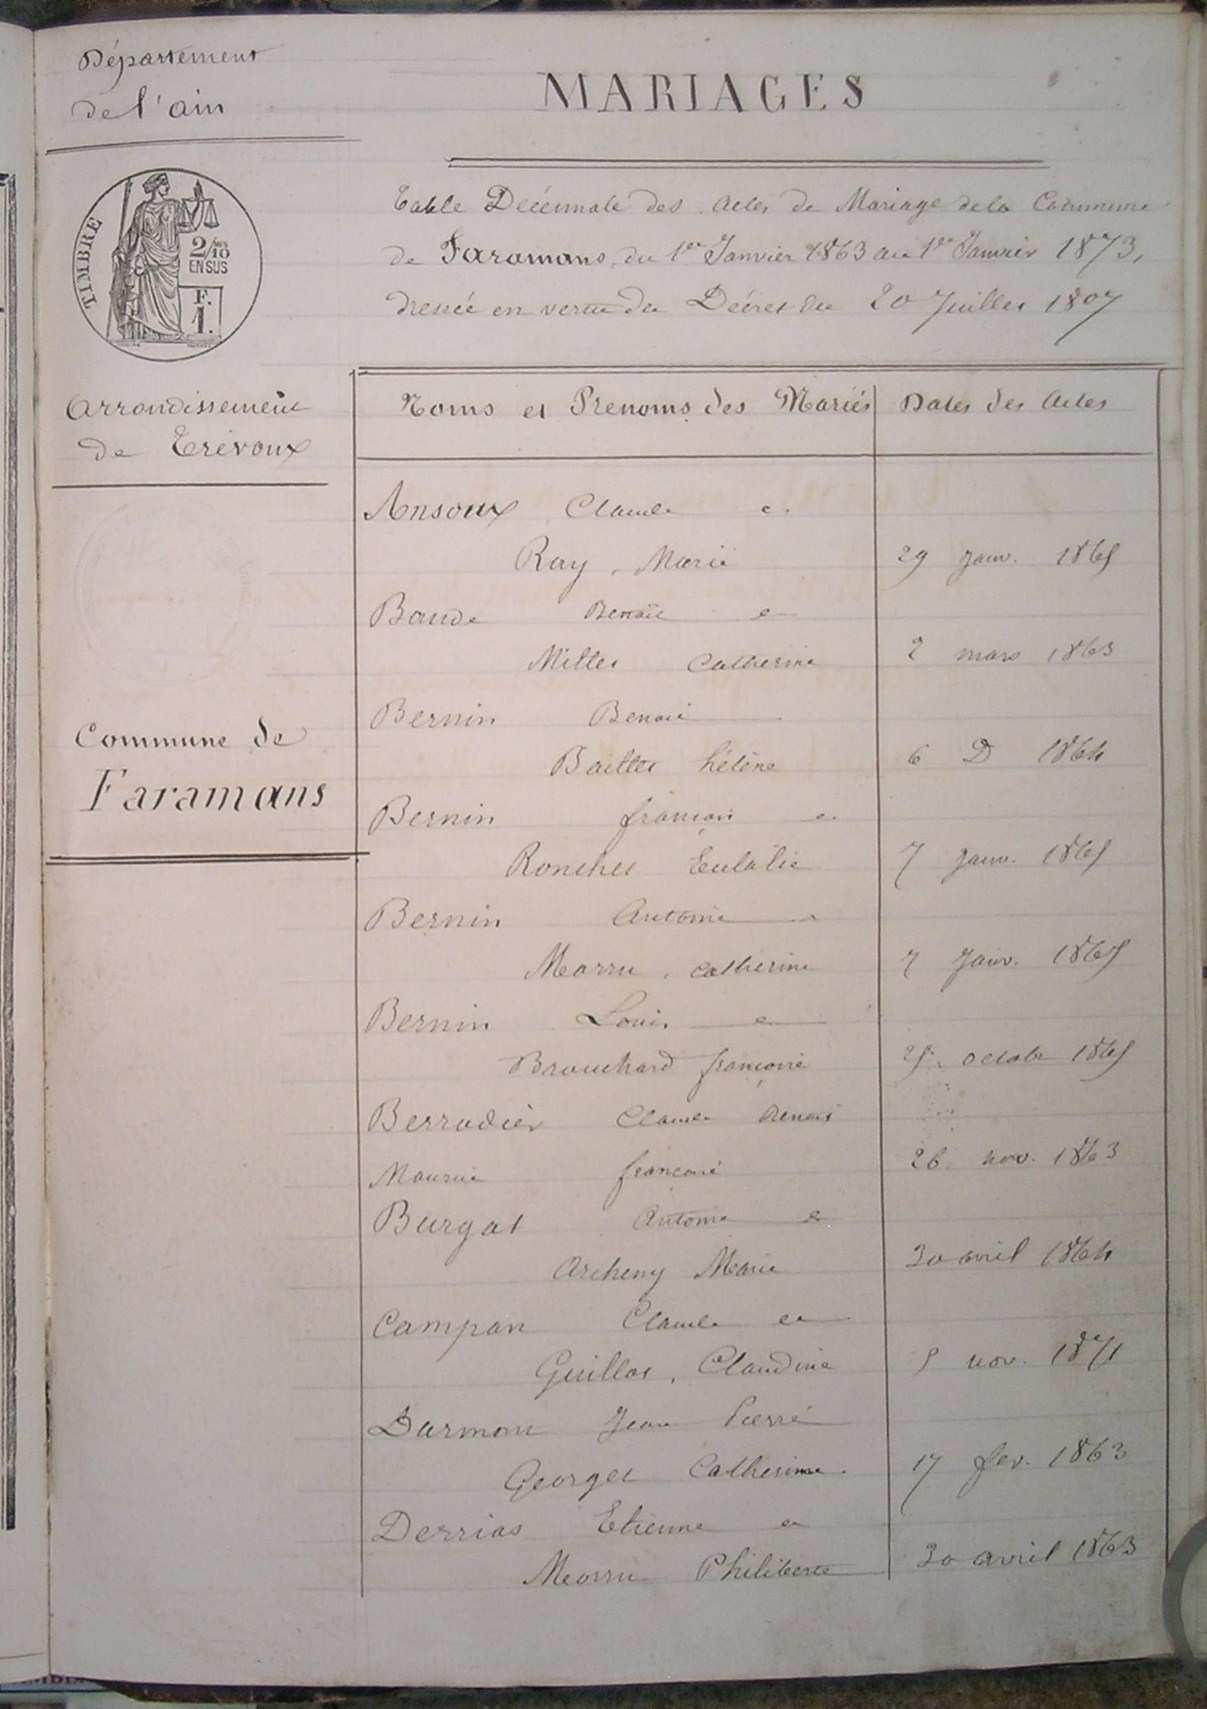 Département
de l'ain
MARIAGES
TIMBRE
2/10
EN SUS
F.
1.
Table Décennale des Actes de Mariage de la Commune
de Faramans, du 1er Janvier 1863 au 1er Janvier 1873,
dressée en vertu du Décret du 20 Juillet 1807
Arrondissement
de Trévoux
Noms et Prenoms des Mariés
Dates des Actes
Ansoux Claude et
Ray, Marie
29 janv. 1865
Baude Benoit et
Millet Catherine
2 mars 1863
Commune de
Faramans
Bernin Benoit
Baillet hélène
6 D 1864
Bernin françois et
Ronchet Eulalie
7 janv. 1865
Bernin Antoine
Marru, catherine
7 Janv. 1865
Bernin Louis et
Brouchard françoise
25 octobr 1865
Berrodier Claude Benoit
Maurice françoise
26 nov. 1863
Burgat Antoine et
Archeny Marie
30 avril 1864
Campan Claude et
Guillot, Claudine
5 nov. 1871
Darmont Jean Pierre
Georget Catherine
17 fev. 1863
Derrias Etienne et
Marru Philiberte
30 avril 1863